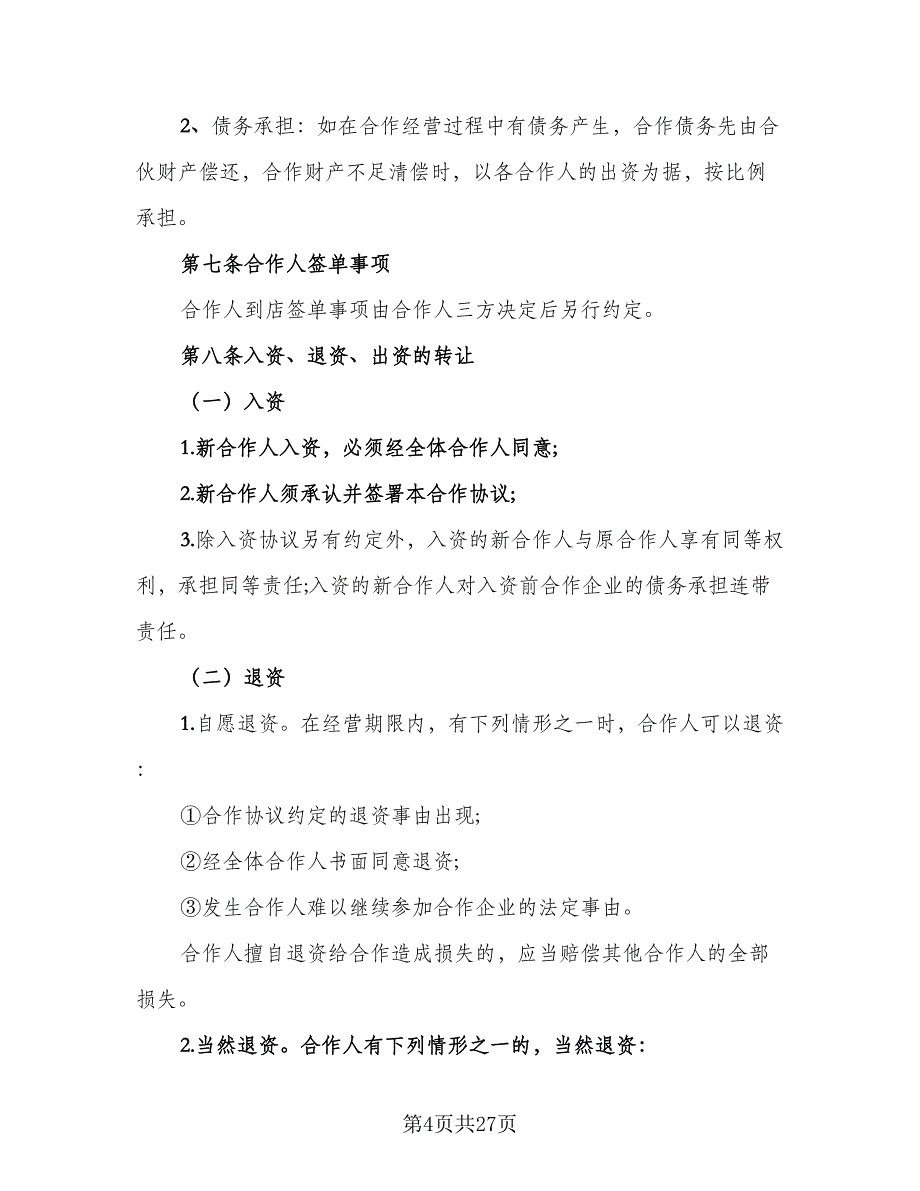 2、债务承担：如在合作经营过程中有债务产生，合作债务先由合
伙财产偿还，合作财产不足清偿时，以各合作人的出资为据，按比例
承担。
第七条合作人签单事项
合作人到店签单事项由合作人三方决定后另行约定。
第八条入资、退资、出资的转让
（一）入资
1.新合作人入资，必须经全体合作人同意;
2.新合作人须承认并签署本合作协议;
3.除入资协议另有约定外，入资的新合作人与原合作人享有同等权
利，承担同等责任;入资的新合作人对入资前合作企业的债务承担连带
责任。
（二）退资
1.自愿退资。在经营期限内，有下列情形之一时，合作人可以退资
：
①合作协议约定的退资事由出现;
②经全体合作人书面同意退资;
③发生合作人难以继续参加合作企业的法定事由。
合作人擅自退资给合作造成损失的，应当赔偿其他合作人的全部
损失。
2.当然退资。合作人有下列情形之一的，当然退资：
第4页共27页